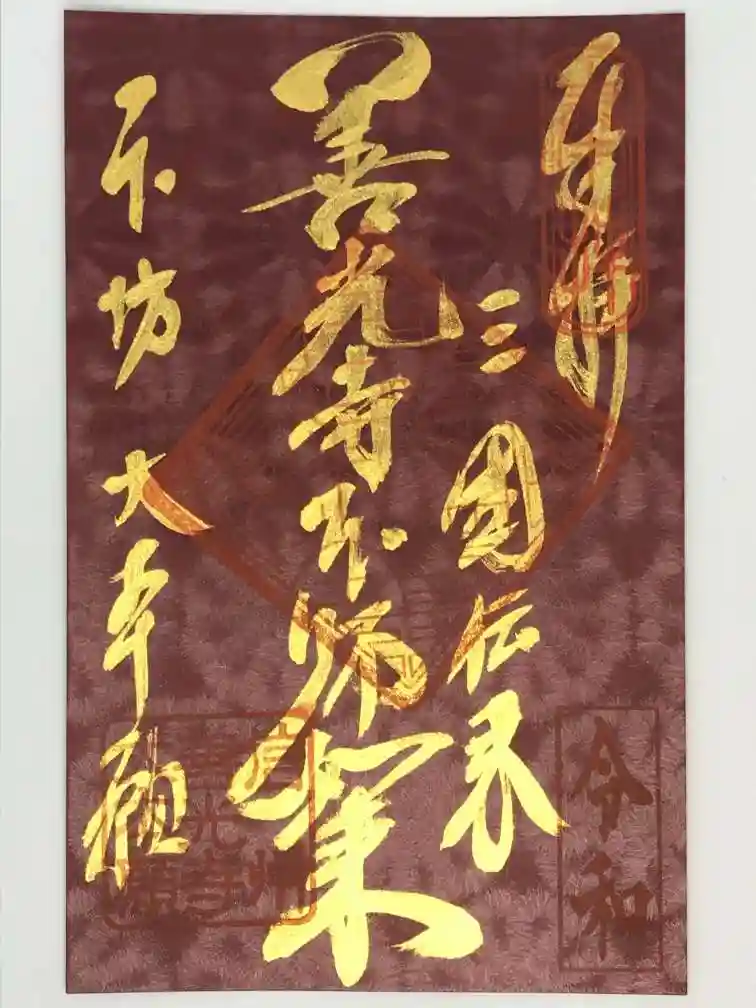 奉拝
三國伝来
善光寺本師如来
本坊 大本願
令和